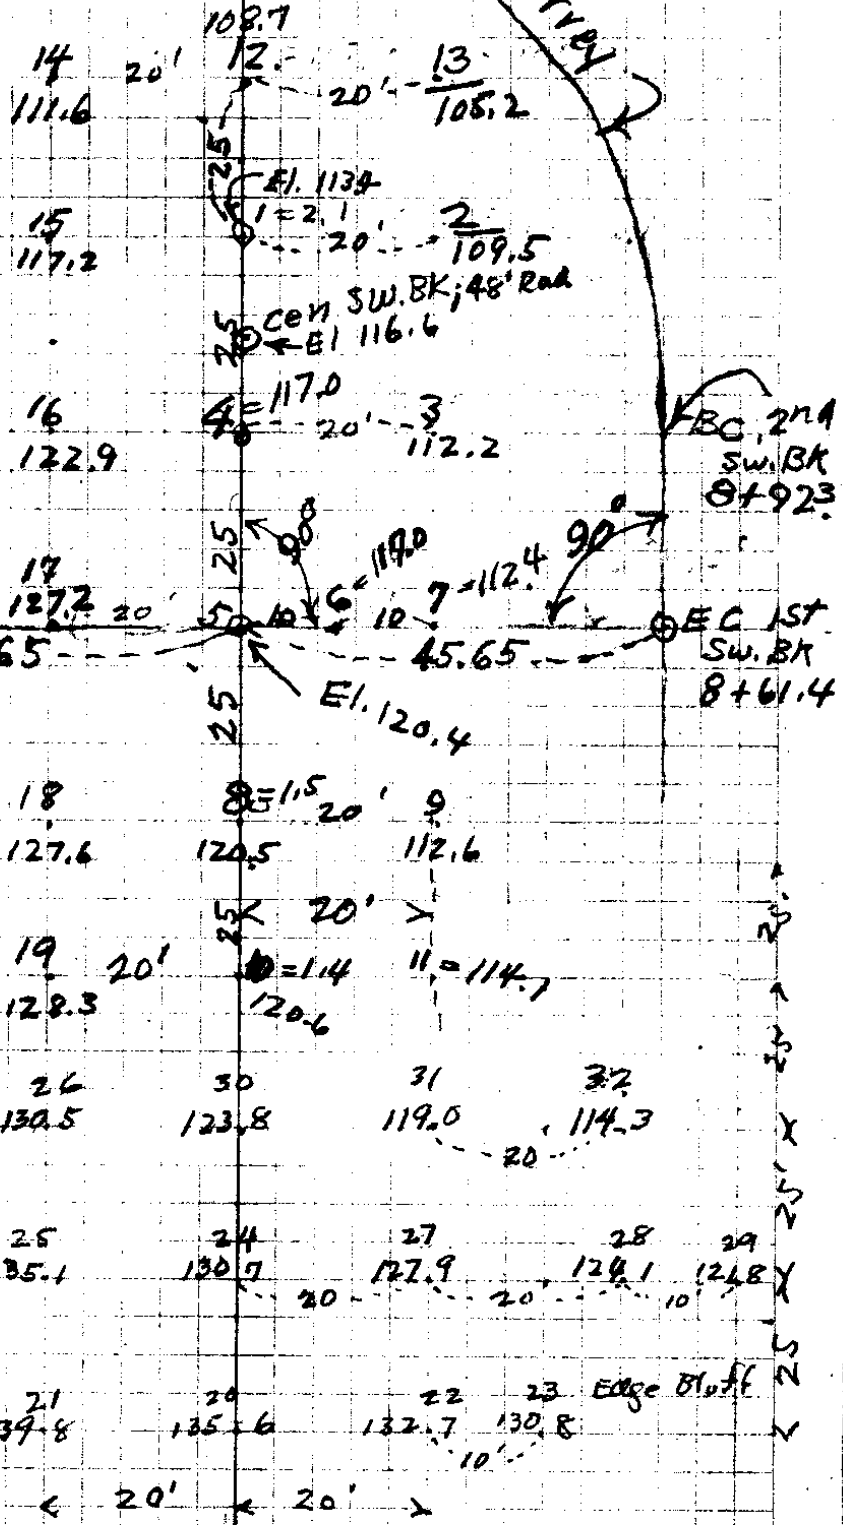 108.7
14 20' 12. 13
111.6 20' 105.2
25
El. 113.9
15 1 = 2.1 2
117.2 20' 109.5
cen SW.BK; 48' Rad
25 El 116.6
16 4 = 117.0 20' 3
122.9 112.2
BC, 2nd
Sw. BK
8+92.3
25 90° 90°
17 6 119.0 7 = 112.4
127.2 20' 5 10 10 EC 1st
65 45.65 Sw. BK
8+61.4
25 El. 120.4
18 8 = 1.5 20' 9
127.6 120.5 112.6
25 20' 25'
19 20' 10 = 1.4 11 = 114.7
128.3 120.6
25'
26 30 31 32
130.5 123.8 119.0 114.3
20
25'
25 24 27 28 29
35.1 130.7 127.9 124.1 121.8
20 20' 10'
25
21 20 22 23 Edge Bluff
39.8 135.6 132.7 130.8
10'
20' 20'